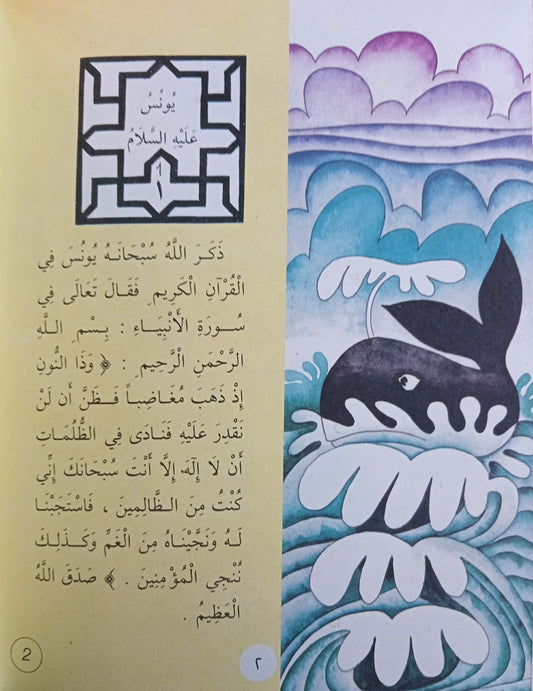 يُونُسُ
عَلَيْهِ السَّلَامُ
١
ذَكَرَ اللَّهُ سُبْحَانَهُ يُونُسَ فِي
الْقُرْآنِ الْكَرِيمِ فَقَالَ تَعَالَى فِي
سُورَةِ الْأَنْبِيَاءِ : بِسْمِ اللَّهِ
الرَّحْمَنِ الرَّحِيمِ : ﴿ وَذَا النُّونِ
إِذْ ذَهَبَ مُغَاضِباً فَظَنَّ أَن لَنْ
نَقْدِرَ عَلَيْهِ فَنَادَى فِي الظُّلُمَاتِ
أَنْ لَا إِلَهَ إِلَّا أَنْتَ سُبْحَانَكَ إِنِّي
كُنْتُ مِنَ الظَّالِمِينَ ، فَاسْتَجَبْنَا
لَهُ وَنَجَّيْنَاهُ مِنَ الْغَمِّ وَكَذَلِكَ
نُنْجِي الْمُؤْمِنِينَ . ﴾ صَدَقَ اللَّهُ
الْعَظِيمُ .
٢
2